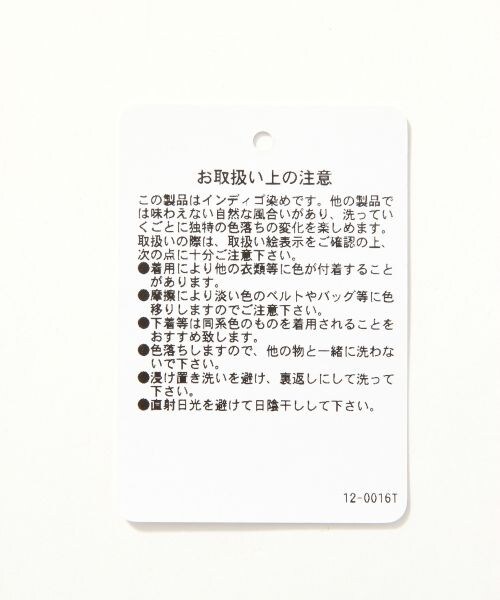 お取扱い上の注意
この製品はインディゴ染めです。他の製品で
は味わえない自然な風合いがあり、洗ってい
くごとに独特の色落ちの変化を楽しめます。
取扱いの際は、取扱い絵表示をご確認の上、
次の点に十分ご注意下さい。
●着用により他の衣類等に色が付着すること
があります。
●摩擦により淡い色のベルトやバッグ等に色
移りしますのでご注意下さい。
●下着等は同系色のものを着用されることを
おすすめ致します。
●色落ちしますので、他の物と一緒に洗わな
いで下さい。
●浸け置き洗いを避け、裏返しにして洗って
下さい。
●直射日光を避けて日陰干しして下さい。
12-0016T